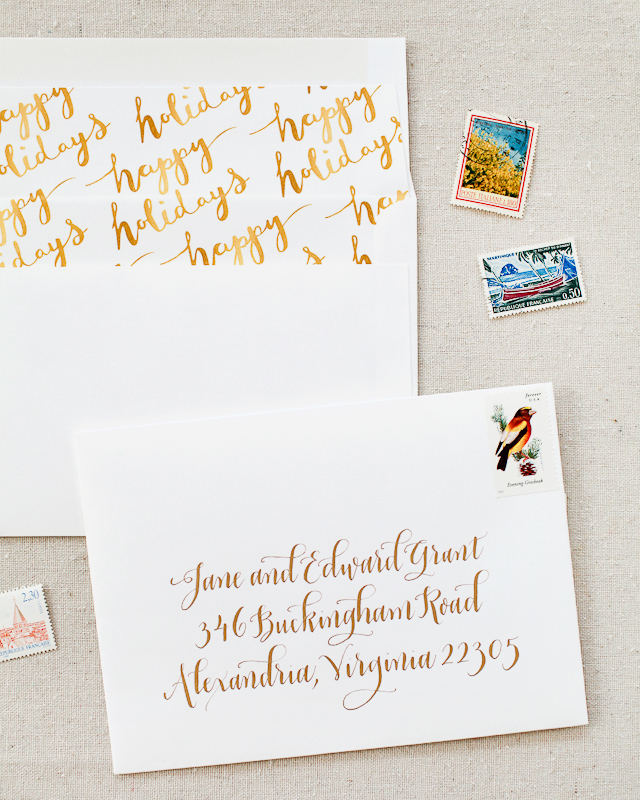 happy
holidays
happy
holidays
happy
holidays
happy
holidays
happy
holidays
happy
POSTE ITALIANE L.180
MARTINIQUE
REPUBLIQUE FRANÇAISE
0,50
forever
USA
Evening Grosbeak
Jane and Edward Grant
346 Buckingham Road
Alexandria, Virginia 22305
2,30